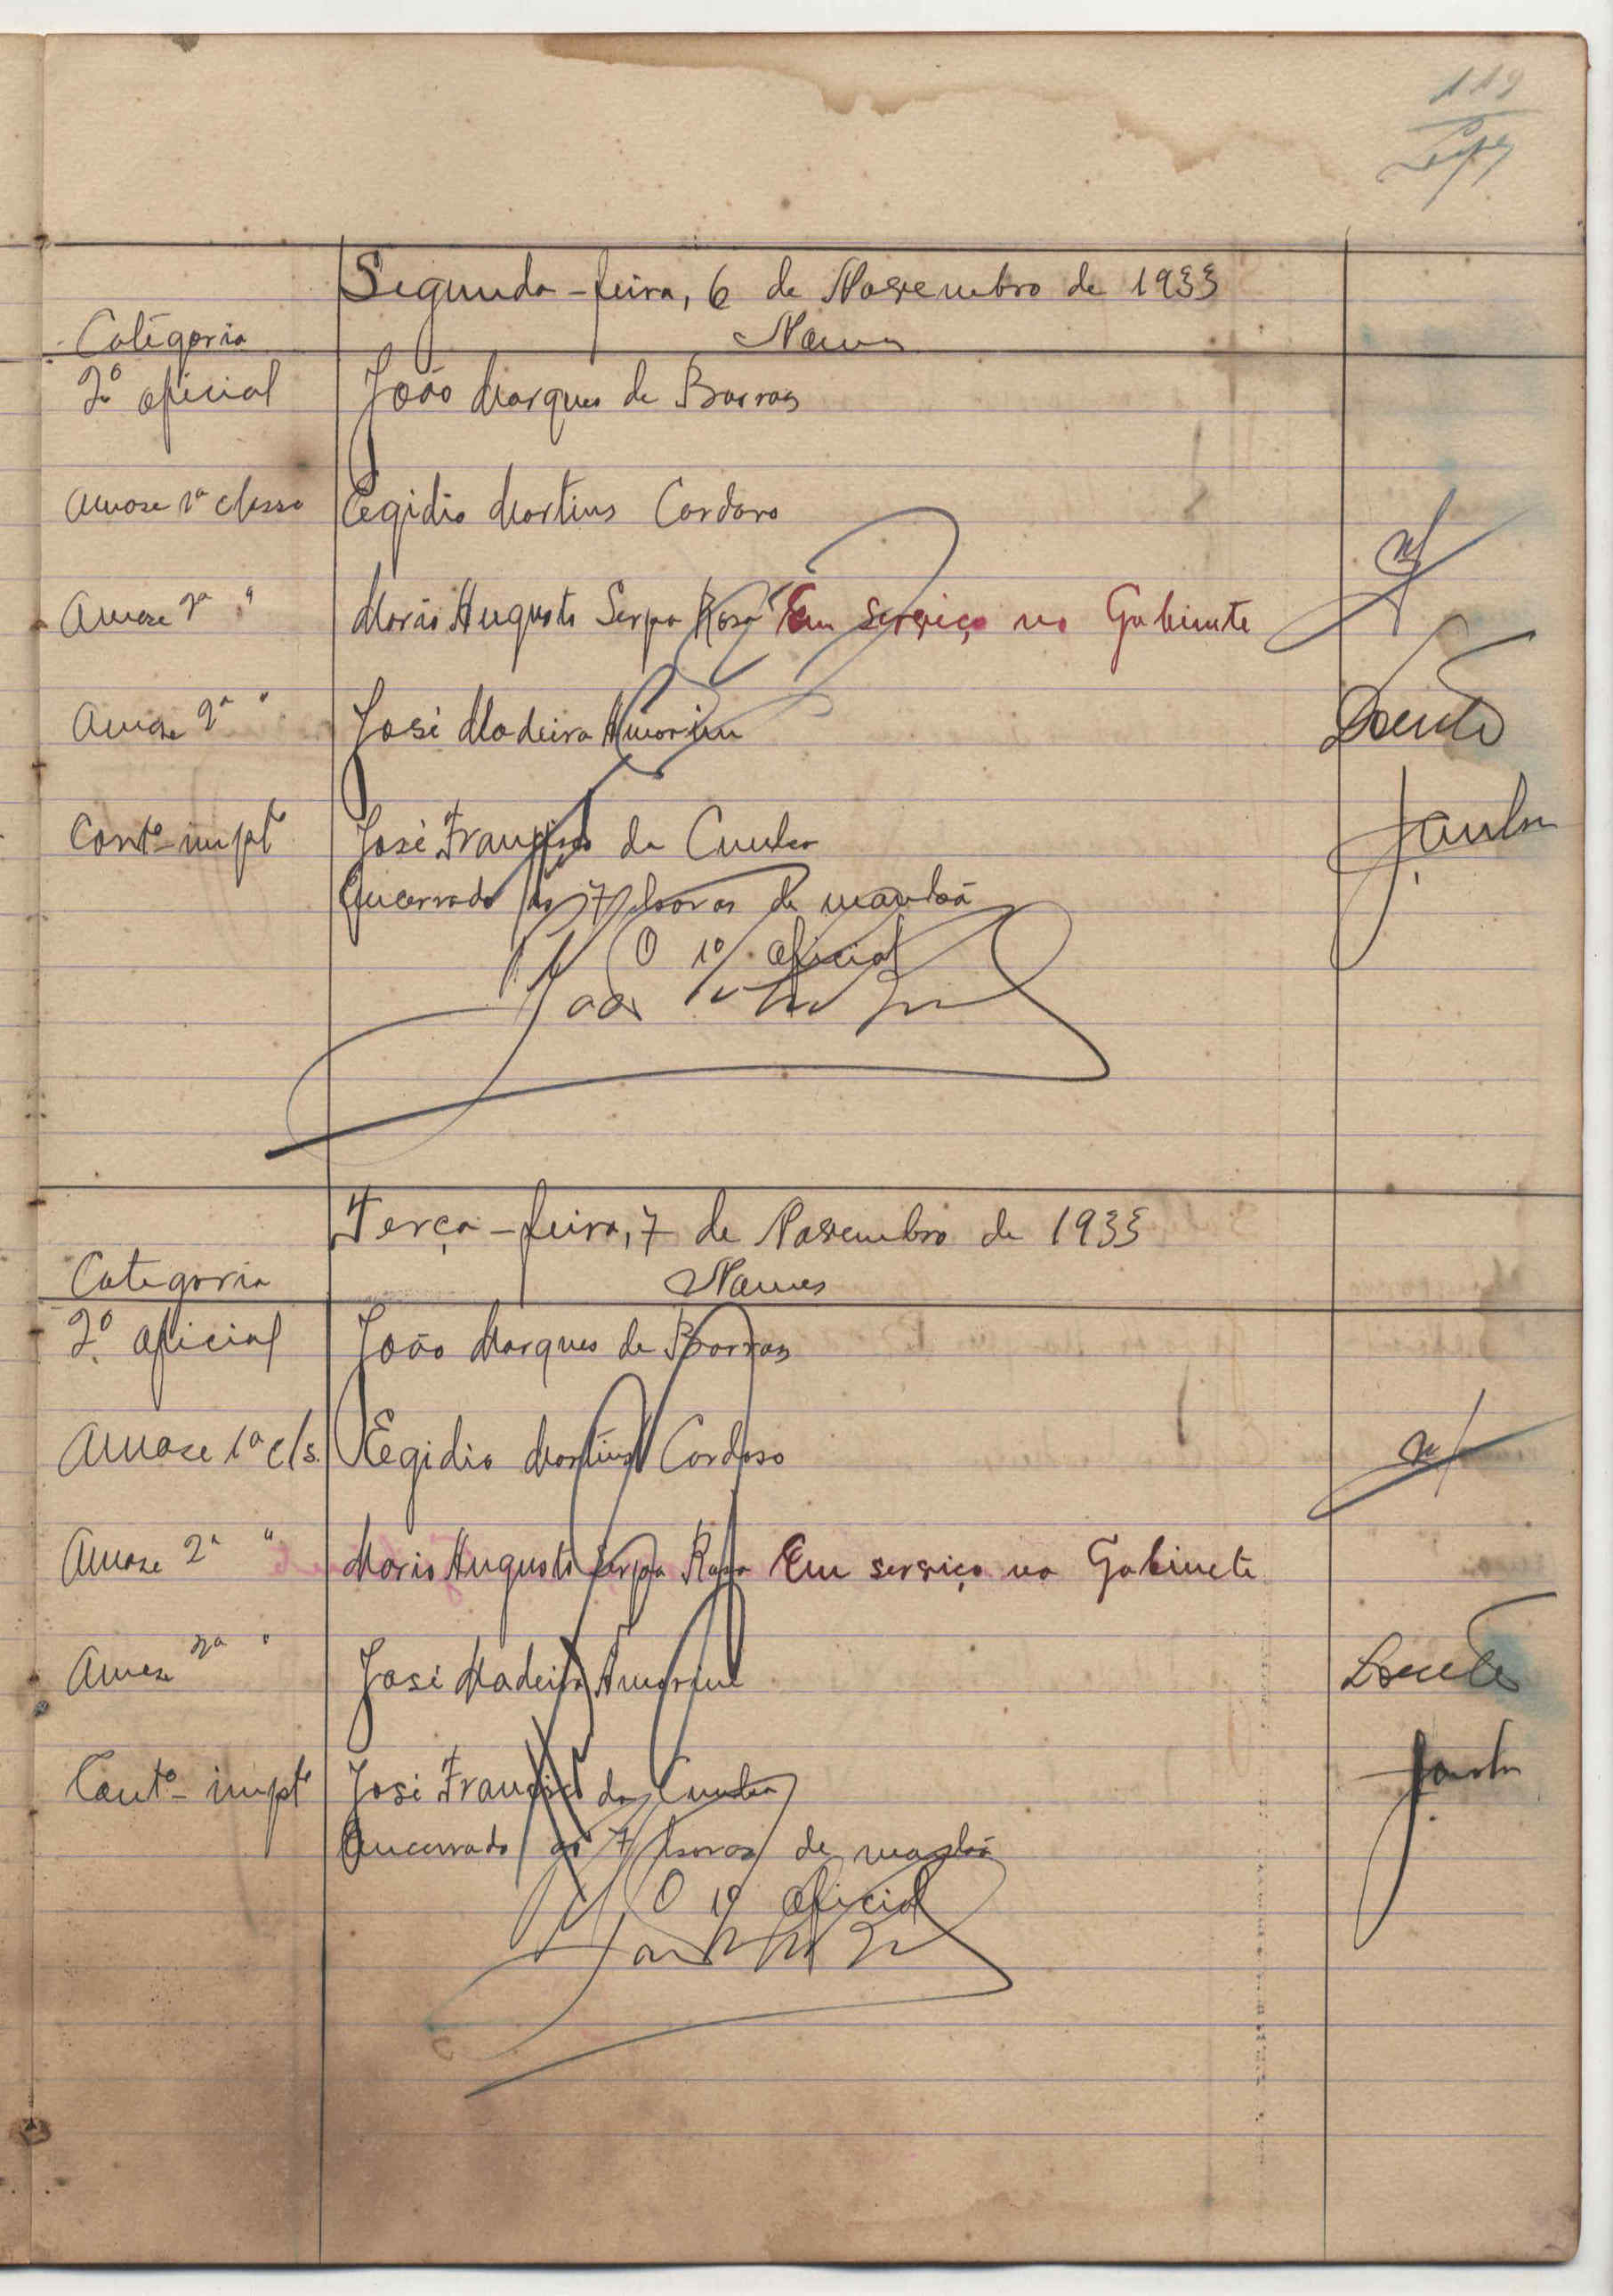 119
Segunda-feira, 6 de Novembro de 1933
Categoria Nomes
2º oficial João Marques de Barros
Amaze 1ª classe Egidio Martins Cardoso
Amaze 2ª " Mario Augusto Serpa Rosa Em serviço no Gabinete
Amaze 2ª " José Madeira Amorim Doente
Contº impt José Francisco da Cunha
Encerrado ás 7 horas da manhã
O 1º oficial
Terça-feira, 7 de Novembro de 1933
Categoria Nomes
2º oficial João Marques de Barros
Amaze 1ª cls. Egidio Martins Cardoso
Amaze 2ª " Mario Augusto Serpa Rosa Em serviço no Gabinete
Amaze 2ª " José Madeira Amorim Doente
Contº impt José Francisco da Cunha
Encerrado ás 7 horas da manhã
O 1º oficial